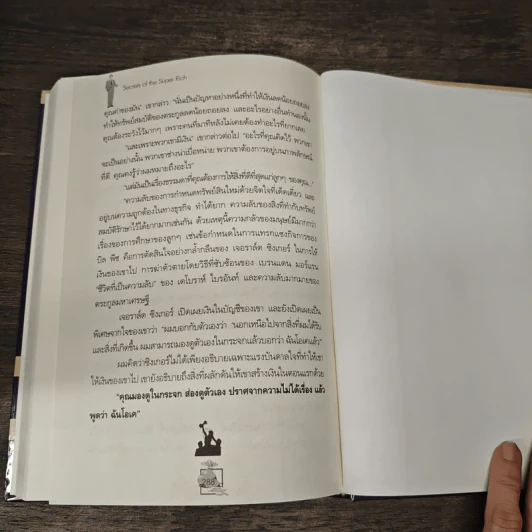 Secrets of the Super Rich
คุณค่าของมัน" เขากล่าว "นั่นเป็นปัญหาอย่างหนึ่งที่ทำให้เงินลดน้อยถอยลง
ทำให้ทรัพย์สมบัติของตระกูลลดน้อยถอยลง และอะไรอย่างอื่นทำนองนั้น
คุณต้องระวังไว้มากๆ เพราะคนที่มาทีหลังไม่เคยต้องทำอะไรที่ยากเลย
"และเพราะพวกเขามีเงิน" เขากล่าวต่อไป "อะไรที่คุณคิดไว้ พวกเขา
จะเป็นอย่างนั้น พวกเขาช่างน่าเบื่อหน่าย พวกเขาต้องการอยู่บนภาพลักษณ์
ที่ดี คุณคงรู้ว่าผมหมายถึงอะไร"
"แต่มันเป็นเรื่องธรรมดาที่คุณต้องการให้สิ่งที่ดีที่สุดแก่ลูกๆ ของคุณ..."
"ความลับของการกำหนดทรัพย์สินใหม่ด้วยจิตใจที่เด็ดเดี่ยว และ
อยู่บนความถูกต้องในทางธุรกิจ ทำได้ยาก ความลับของสิ่งที่ทำกับทรัพย์
สมบัติรักษาไว้ได้ยากมากเช่นกัน ด้วยเหตุนี้ความกลัวของมนุษย์มีมากกว่า
เรื่องของการศึกษาของลูกๆ เช่นข้อกำหนดในการแทรกแซงกิจการของ
บิล พีช คือการตัดสินใจอย่างกล้ำกลืนของ เจอราล์ด ซิงเกอร์ ในการให้
เงินของเขาไป การฆ่าตัวตายโดยวิธีที่ซับซ้อนของ เบรนแดน มอร์แรน
"ชีวิตที่เป็นความลับ" ของ เดโบราห์ ไบรอันท์ และความลับมากมายของ
ตระกูลมหาเศรษฐี
เจอราล์ด ซิงเกอร์ เปิดเผยเงินในบัญชีของเขา และยังเปิดเผยเป็น
พิเศษจากใจของเขาว่า "ผมบอกกับตัวเองว่า 'นอกเหนือไปจากสิ่งที่ผมได้รับ
และสิ่งที่เกิดขึ้น ผมสามารถมองดูตัวเองในกระจกแล้วบอกว่า ฉันโอเค'"
ผมคิดว่าซิงเกอร์ไม่ได้เพียงอธิบายเฉพาะแรงบันดาลใจที่ทำให้เขา
ให้เงินของเขาไป เขายังอธิบายถึงสิ่งที่ผลักดันให้เขาสร้างเงินในตอนแรกด้วย
"คุณมองดูในกระจก ส่องดูตัวเอง ปราศจากความไม่ได้เรื่อง แล้ว
พูดว่า ฉันโอเค"
288